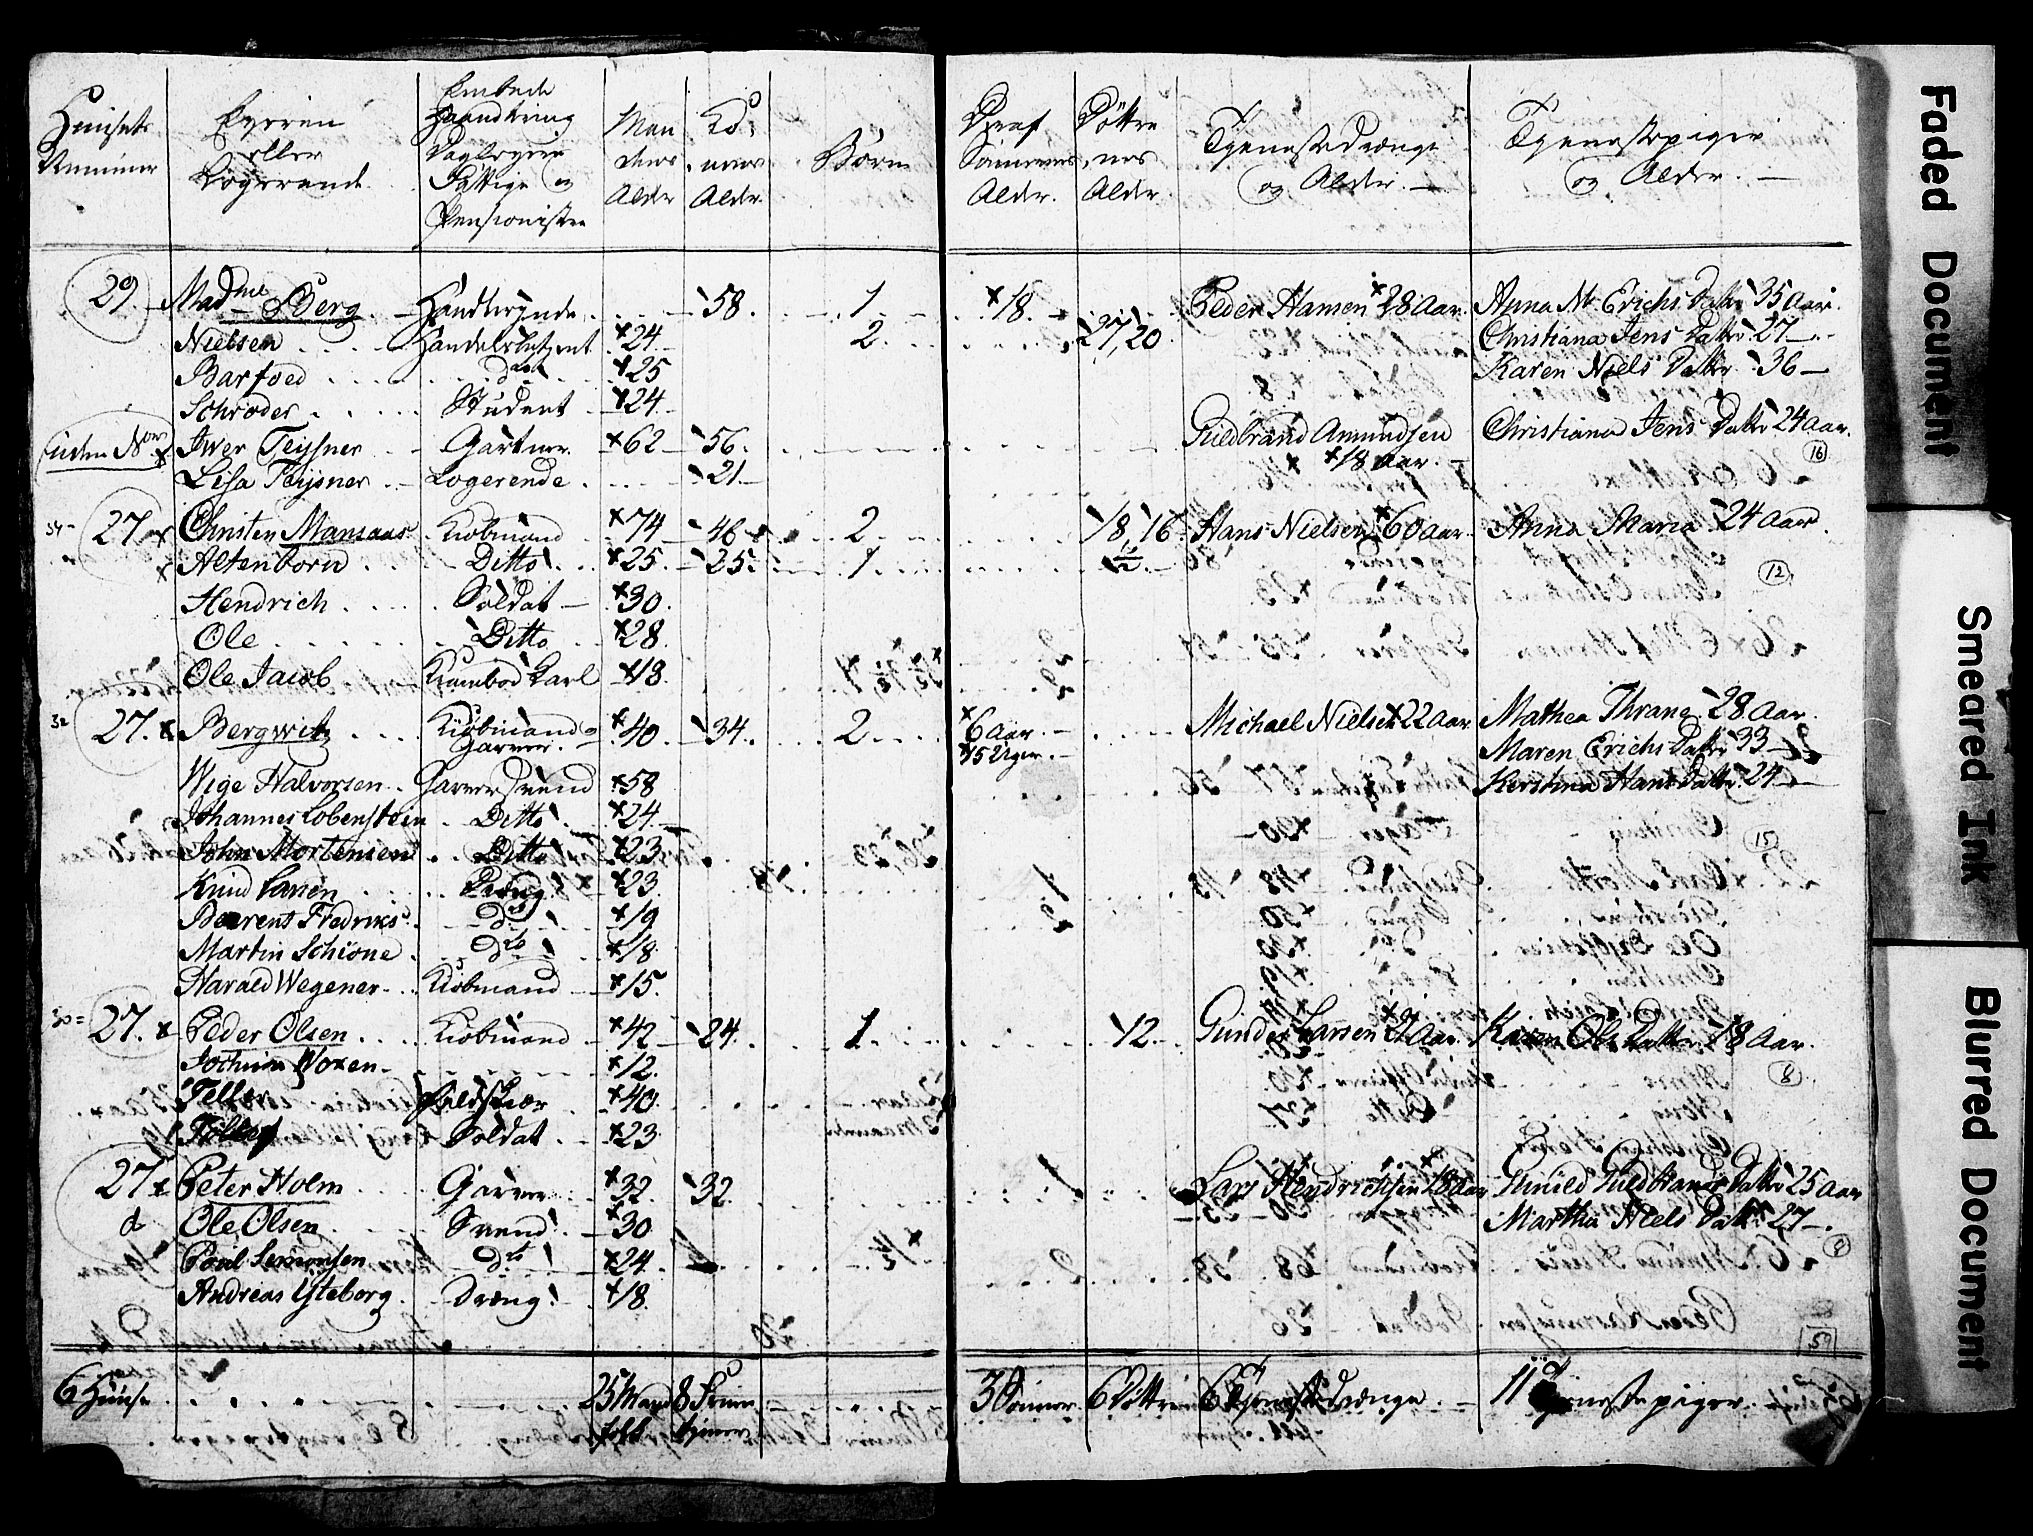 Huusets Nummer
Eyeren eller Logerende
Embede Haandtering Dagleyere Fattige og Pensionister
Mændenes Alder
Ko: nernes Alder
Børn
Deraf Sønnernes Alder.
Døttre nes Alder
Tienestedrænge og Alder. —
Tienestepiger og Alder. —
29. Madme Berg. Handlerinde 58. 1 18. Peder Hansen 28 Aar. Anna M. Erichs Datter 35 Aar.
Nielsen Handelsbetient 24 2 27, 20 Christiana Jens Datter 27
Barfoed do 25 Karen Niels Datter 36
Schrøder Student 24
uden No Iwer Teysner Gartner 62 56. Guldbrand Amundsen Christiana Jens Datter 24 Aar.
18 Aar. 16
Lisa Teysner Logerende 21
27. Christen Mansaas Kiøbmand 74 46 2 18, 16 Hans Nielsen 60 Aar Anna Maria 24 Aar.
Altenborn Ditto 25. 25. 1 1/2 12
Hendrich Soldat 30.
Ole Ditto 28
Ole Jacob Krambod Karl 18
32 27. Bergwitz Kiøbmand og Garver. 40 34. 2 6 Aar. Michael Nielsen 22 Aar Mathea Thrane 28 Aar.
15 Uger. Maren Erichs Datter 33
Wige Halvorsen Garversvend 58 Kerstina Hans Datter 24
Johannes Lobenstein Ditto 24
John Mortensen Ditto 23 15
Knud Larsen Dreng 23
Beerent Fredriks. do 19
Martin Schiöne do 18
Harald Wegener Kiøbmand 15.
30 27. Peder Olsen Kiøbmand 42 24. 1 12. Gunder Larsen 21 Aar Karen Ols Datter 18 Aar.
Jochum Woxen 12. 8
Feldskiær 40
Soldat 23
27 Peter Holm Garver 32 32 Lars Hendrichsen 18 Aar Gunild Guldbrands Datter 25 Aar
d Ole Olsen Svend 30 Martha Niels Datter 27
Poul Simonsen do 24 8
Andreas Ysteborg Dreng 18.
59
6 Huuse 25 Mand folk 8 Fruen timer 3 Sønner 6 Døttre 6 Tienestedrænge. 11 Tienestepiger.
Faded Document
Smeared Ink
Blurred Document